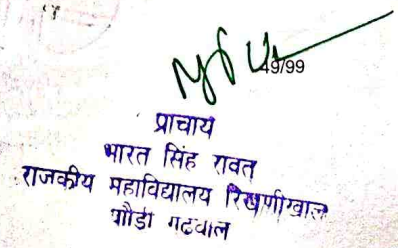 49/99
प्राचार्य
भारत सिंह रावत
राजकीय महाविद्यालय रिखणीखाल
पौडी गढवाल